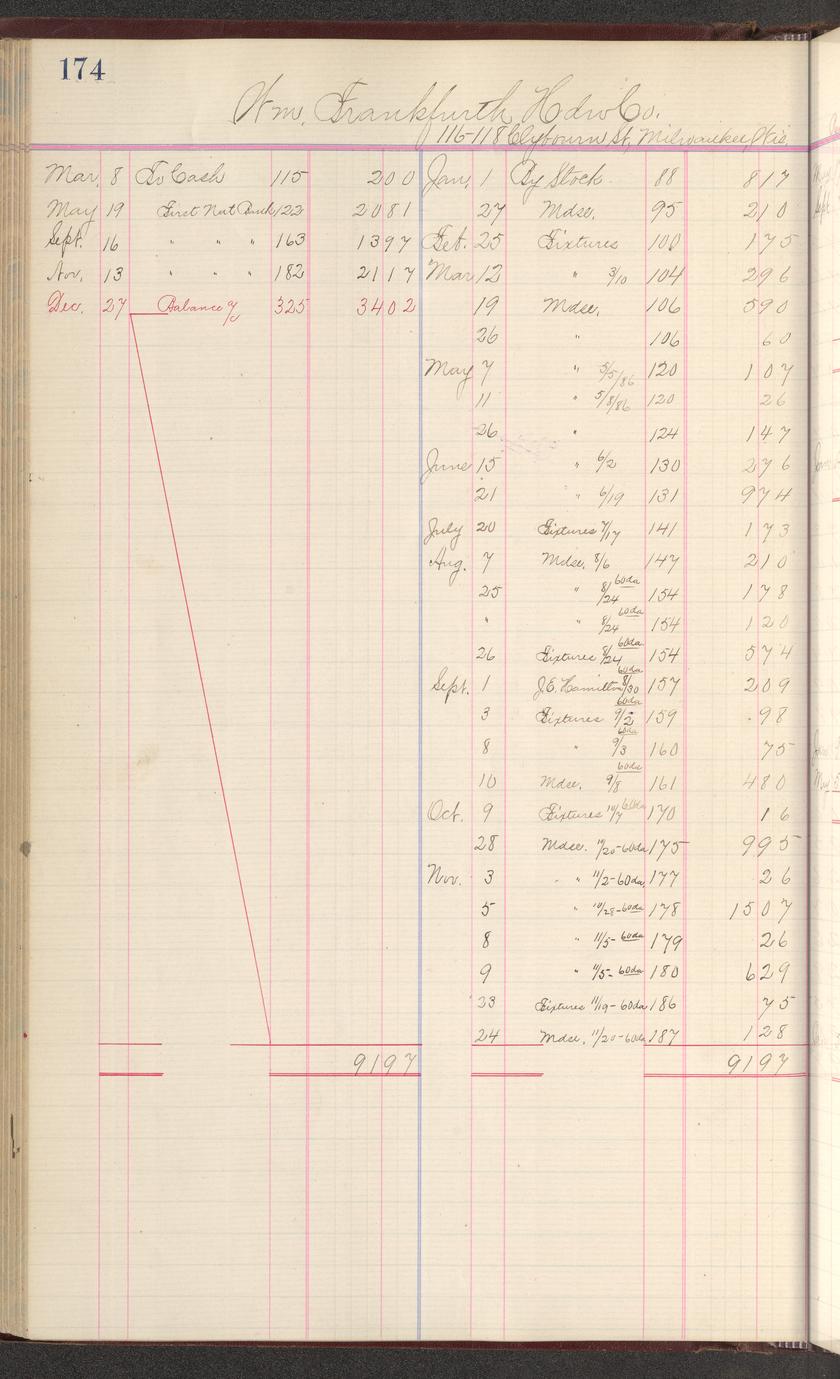 174
Wm. Frankfurth Hdw Co.
116-118 Clybourn St, Milwaukee, Wis.
Mar. 8 To Cash 115 200
May 19 First Nat Bank 122 2081
Sept. 16 " " " 163 1397
Nov. 13 " " " 182 2117
Dec. 27 Balance 325 3402
9197
Jan. 1 By Stock 88 817
27 Mdse. 95 210
Feb. 25 Fixtures 100 175
Mar 12 " 3/10 104 296
19 Mdse. 106 590
26 " 106 60
May 7 " 5/5/86 120 107
11 " 5/8/86 120 26
26 " 124 147
June 15 " 6/2 130 276
21 " 6/19 131 974
July 20 Fixtures 7/17 141 173
Aug. 7 Mdse. 8/6 147 210
25 " 8/24 60da 154 178
" " 8/24 60da 154 120
26 Fixtures 8/24 60da 154 574
Sept. 1 J.E. Hamilton 8/30 60da 157 209
3 Fixtures 9/2 60da 159 98
8 " 9/3 60da 160 75
10 Mdse. 9/8 60da 161 480
Oct. 9 Fixtures 10/7 60da 170 16
28 Mdse. 10/20-60da 175 995
Nov. 3 " 11/2-60da 177 26
5 " 10/28-60da 178 1507
8 " 11/5-60da 179 26
9 " 11/5-60da 180 629
23 Fixtures 11/19-60da 186 75
24 Mdse. 11/20-60da 187 128
9197